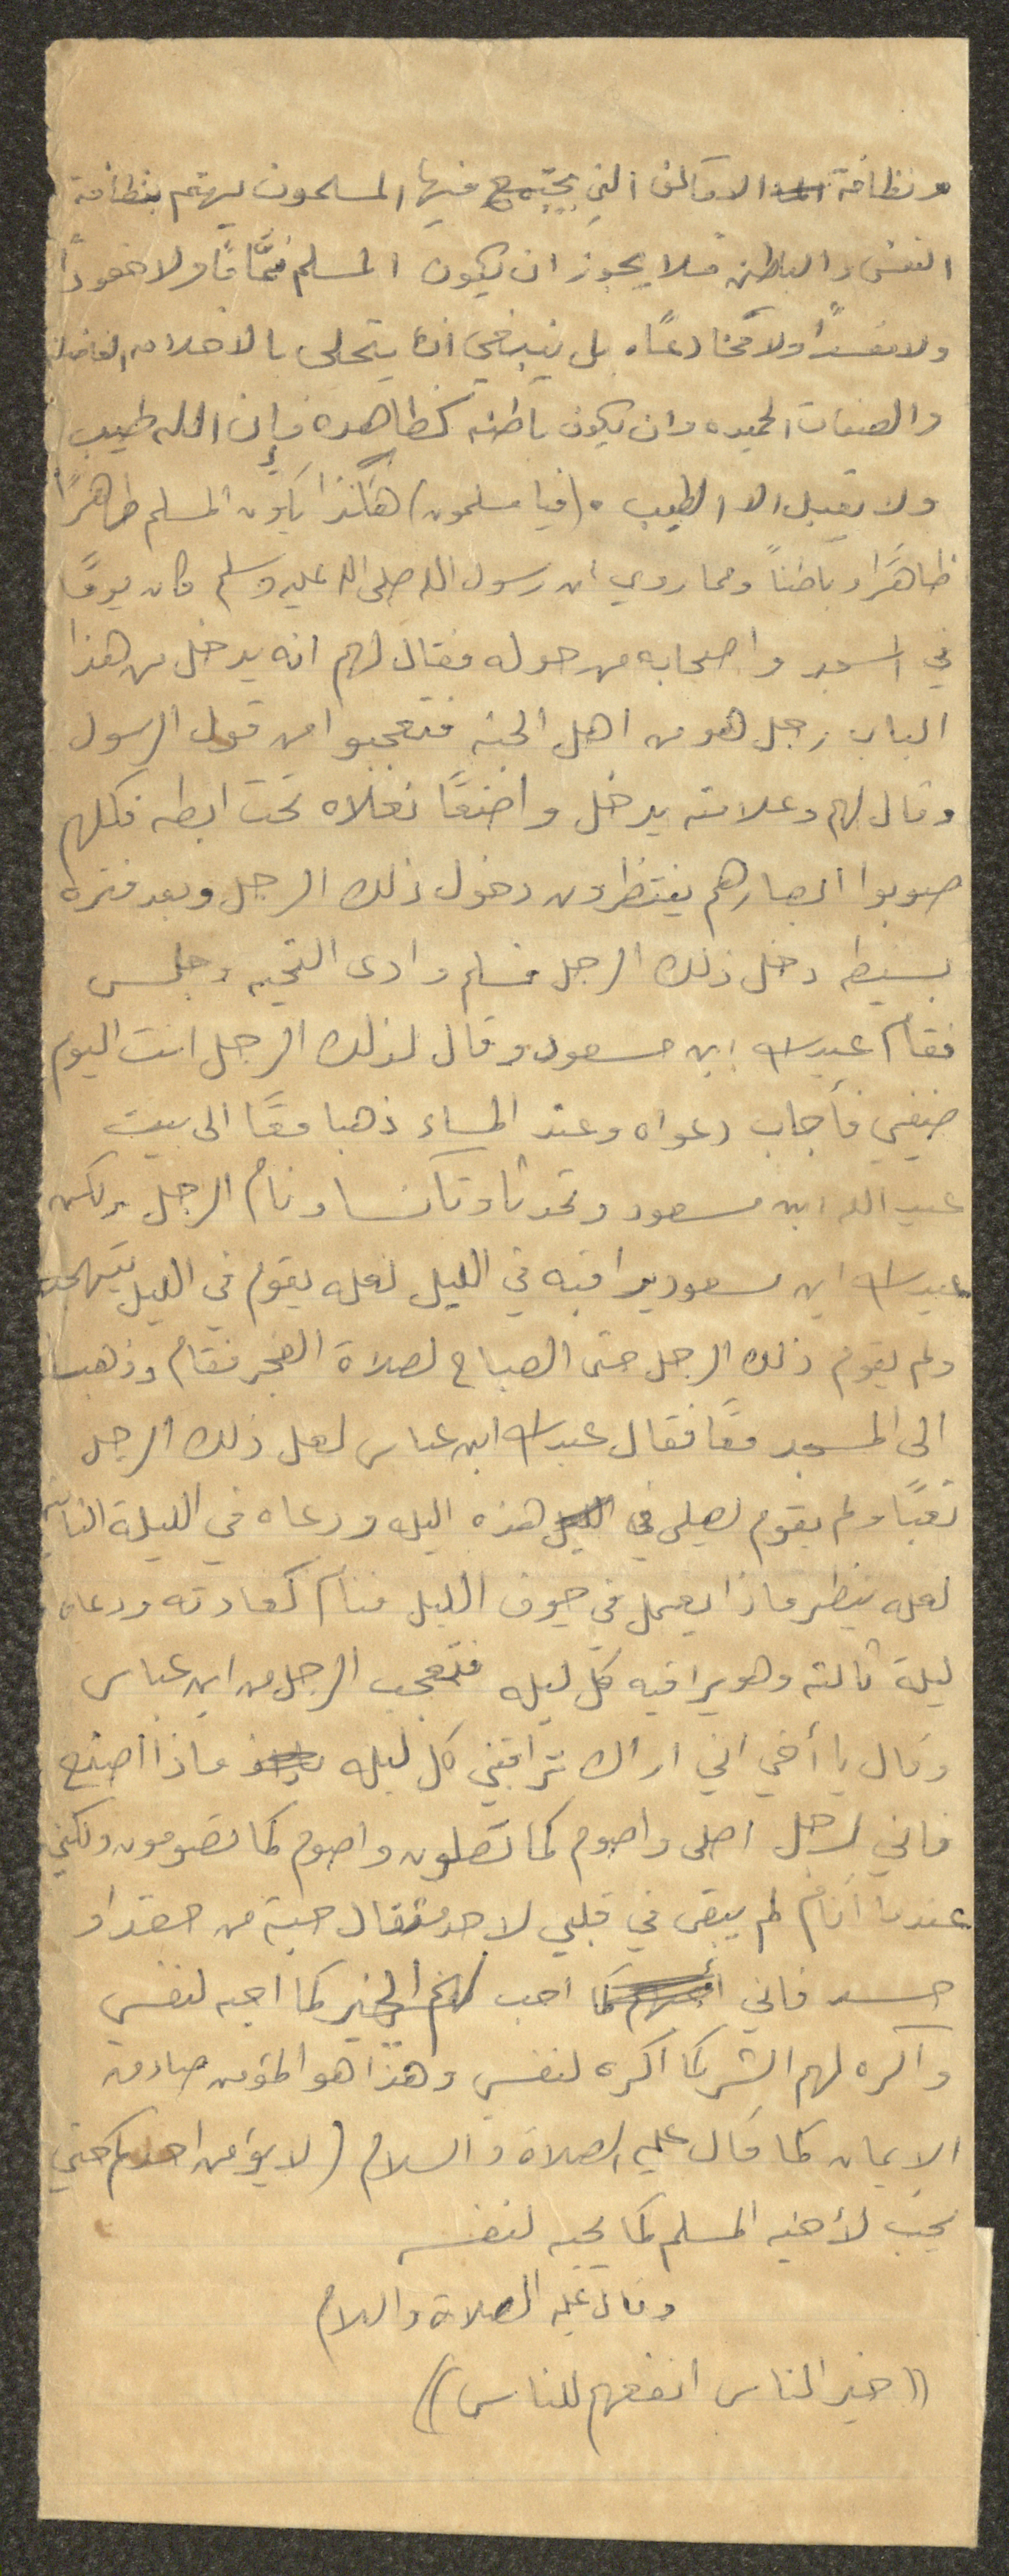 ونظافة الاماكن التي يجتمع فيها المسلمون ليهتم بنظافة
النفس والباطن فلا يجوز ان يكون المسلم نمَّامًا ولا حقودًا
ولا مفسدًا ولا مخادعًا، بل ينبغي ان يتحلى بالاخلاق الفاضلة
والصفات الحميده وان يكون باطنه كظاهره فإن الله طيب
ولا يقبل الا الطيب . (فيا مسلمون) هكذا يكون المسلم طاهرًا
ظاهرًا وباطنًا ومما روي ان رسول الله صلى الله عليه وسلم كان يومًا
في المسجد واصحابه من حوله فقال لهم انه يدخل من هذا
الباب رجل هو من اهل الجنه فتعجبوا من قول الرسول
وقال لهم وعلامته يدخل واضعًا نعلاه تحت ابطه فكلهم
صوبوا ابصارهم ينتظرون دخول ذلك الرجل وبعد فتره
بسيطه دخل ذلك الرجل فسلم وادى التحيه وجلس
فقام عبدالله ابن مسعود وقال لذلك الرجل انت اليوم
ضيفي فأجاب دعواه وعند المساء ذهبا معًا الى بيت
عبد الله ابن مسعود وتحدثا وتآنسا ونام الرجل ولكن
عبدالله ابن مسعود يراقبه في الليل لعله يقوم في الليل يتهجد
ولم يقوم ذلك الرجل حتى الصباح لصلاة الفجر فقام وذهب
الى المسجد معًا فقال عبدالله ابن عباس لعل ذلك الرجل
تعبًا ولم يقوم ليصلي في الليل هذه اليله ودعاه في الليلة الثانيه
لعله ينظر ماذا يعمل في جوف الليل فنام كعادته ودعاه
ليلة ثالثه وهو يراقبه كل ليله فتعجب الرجل من ابن عباس
وقال يا أخي اني اراك تراقبني كل ليله ماذا اصنع
فاني لرجل اصلي واصوم كما تصلون واصوم كما تصومون ولكني
عندما أنام لم يبقى في قلبي لاحد مثقال حبة من حقد او
حسد فاني احب لهم الخير كما احبه لنفسي
وأكره لهم الشر كما اكره لنفسي وهذا هو المؤمن صادق
الايمان كما قال عليه الصلاة والسلام (لا يؤمن احدكم حتى
يحب لأخيه المسلم كما يحبه لنفسه
وقال عليه الصلاة والسلام
((خير الناس انفعهم للناس))